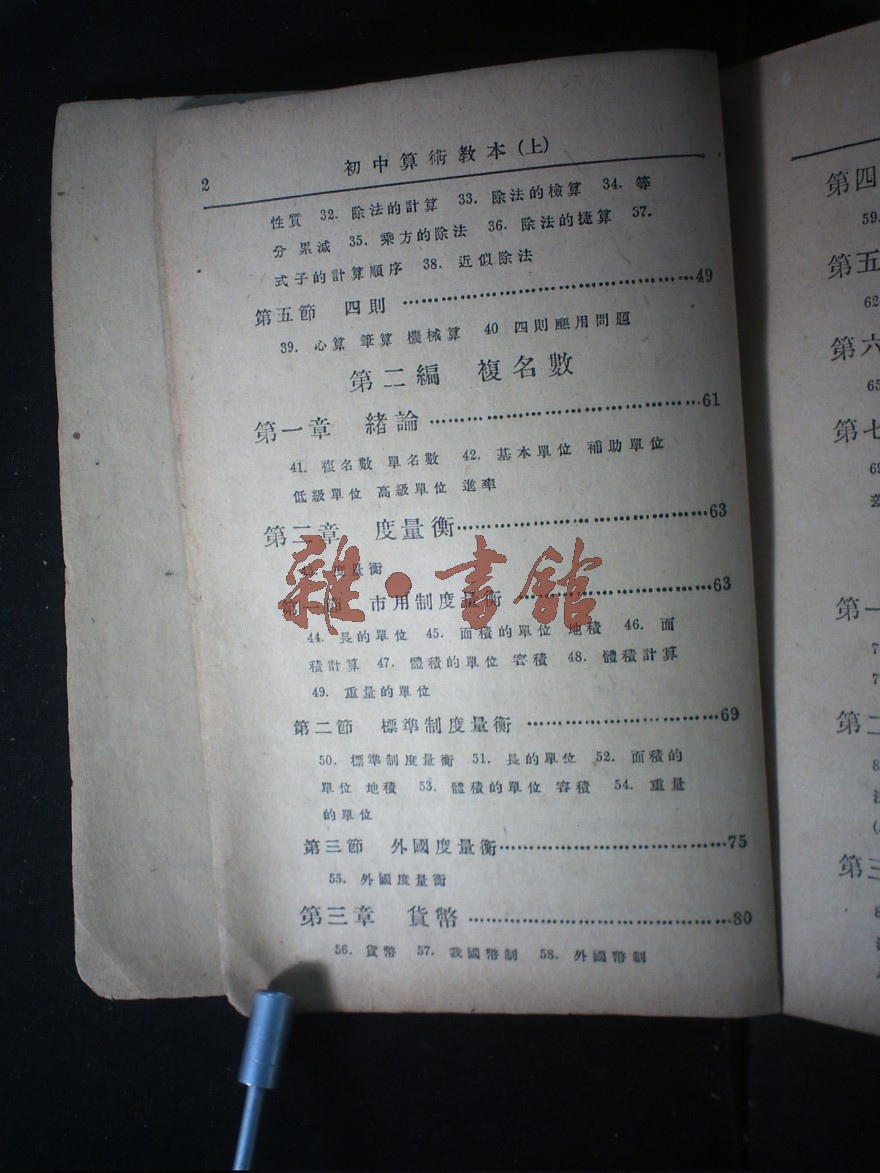 2
初中算術教本(上)
性質 32. 除法的計算 33. 除法的檢算 34. 等
分 累減 35. 乘方的除法 36. 除法的捷算 37.
式子的計算順序 38. 近似除法
第五節 四則 49
39. 心算 筆算 機械算 40 四則應用問題
第二編 複名數
第一章 緒論 61
41. 複名數 單名數 42. 基本單位 補助單位
低級單位 高級單位 進率
第二章 度量衡 63
量衡
第一節 市用制度量衡 63
44. 長的單位 45. 面積的單位 地積 46. 面
積計算 47. 體積的單位 容積 48. 體積計算
49. 重量的單位
第二節 標準制度量衡 69
50. 標準制度量衡 51. 長的單位 52. 面積的
單位 地積 53. 體積的單位 容積 54. 重量
的單位
第三節 外國度量衡 75
55. 外國度量衡
第三章 貨幣 80
56. 貨幣 57. 我國幣制 58. 外國幣制
雜·書館
第四
59.
第五
62
第六
65
第七
69
第一
7
7
第二
8
第三
8